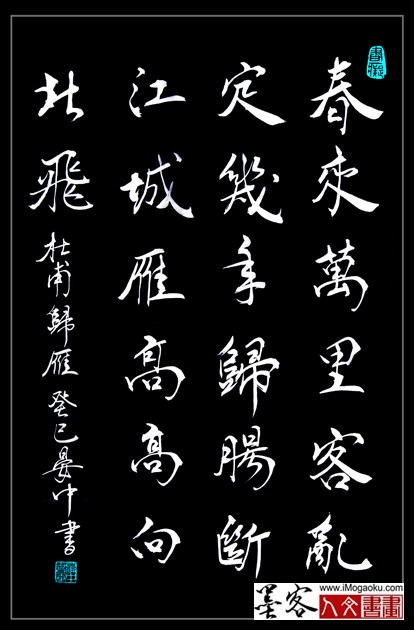 春來萬里客亂
定幾年歸腸斷
江城雁高高向
北飛
杜甫歸雁 癸巳晏中書
墨客
www.iMogaoku.com
人文書畫